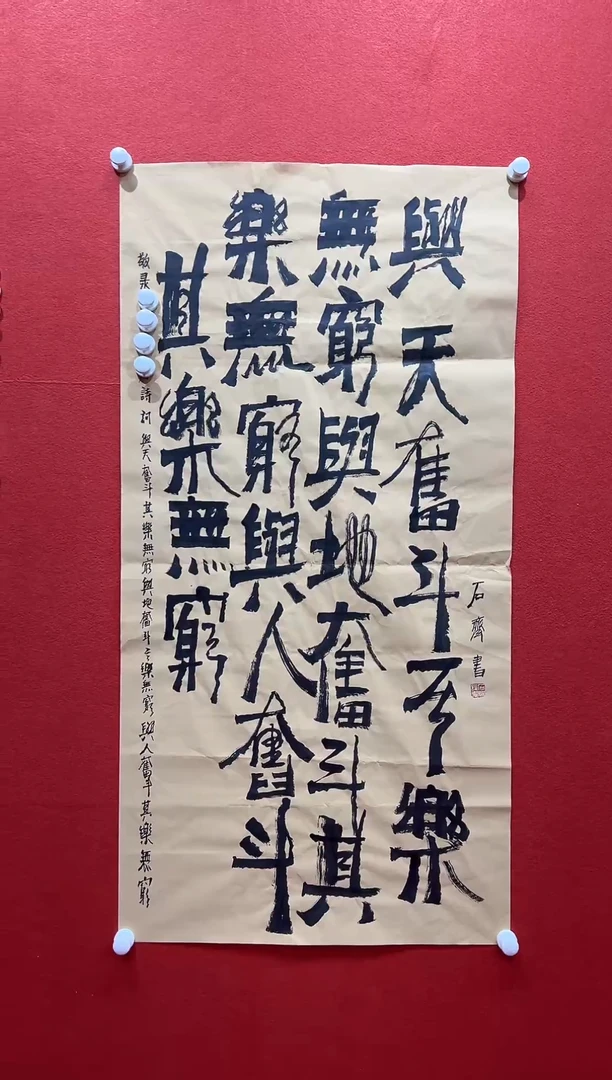 石齊書
與天奮斗亓樂
無窮與地奮斗其
樂無窮與人奮斗
其樂無窮
敬录詩詞與天奮斗其樂無窮與地奮斗亓樂無窮與人奮斗其樂無窮